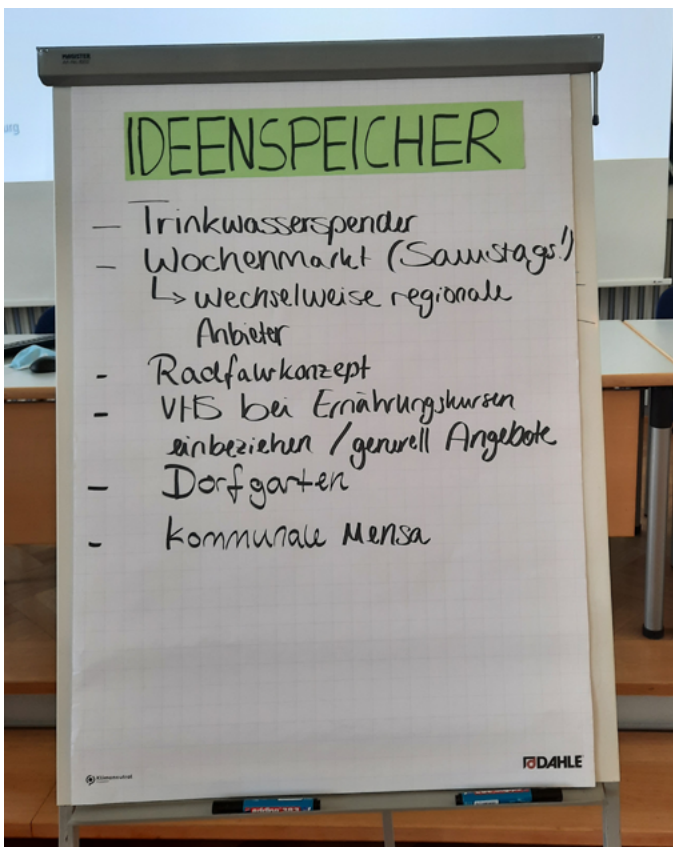 IDEENSPEICHER
- Trinkwasserspender
- Wochenmarkt (Samstags!)
↳ wechselweise regionale
Anbieter
- Radfahrkonzept
- VHS bei Ernährungskursen
einbeziehen / generell Angebote
- Dorfgarten
- kommunale Mensa
DAHLE